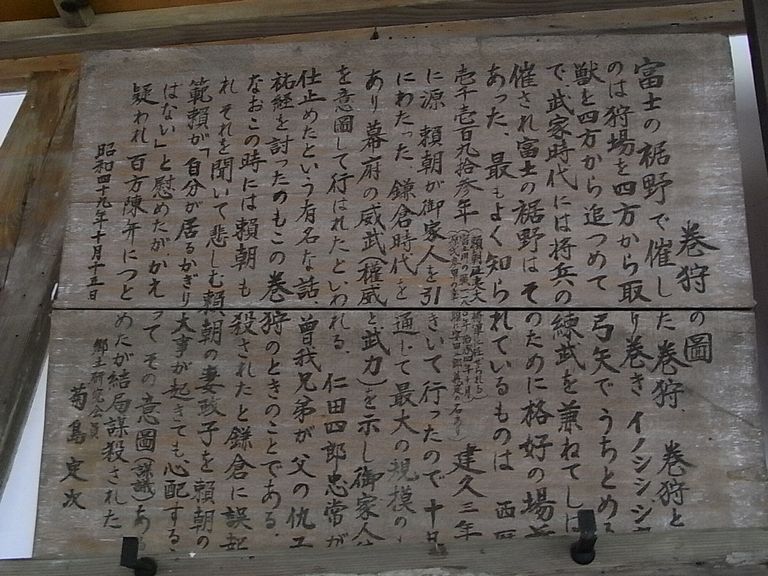 巻狩の圖
富士の裾野で催した巻狩、巻狩と
のは狩場を四方から取り巻きイノシシシ
獣を四方から追つめて弓矢でうちとめる
で、武家時代には将兵の練武を兼ねてしば
催され富士の裾野はそのために格好の場
あった、最もよく知られているものは西暦
壱千壱百九拾参年 建久三年
に源頼朝が御家人を引きいて行ったので十日
にわたった、鎌倉時代を通して最大の規模の
あり幕府の威武(権威と武力)を示し御家人
を意圖して行はれたといわれる、仁田四郎忠常が
仕止めたという有名な話、曽我兄弟が父の仇工
祐経を討ったのもこの巻狩のときのことである、
なおこの時には頼朝も殺されたと鎌倉に誤
れそれを聞いて悲しむ頼朝の妻政子を頼朝の
範頼が「自分が居るかぎり大事が起きても心配する
はない」と慰めたがかえってその意圖
疑われ百方陳弁につとめたが結局謀殺された
昭和四十九年十月十五日
郷土研究会員 菊島